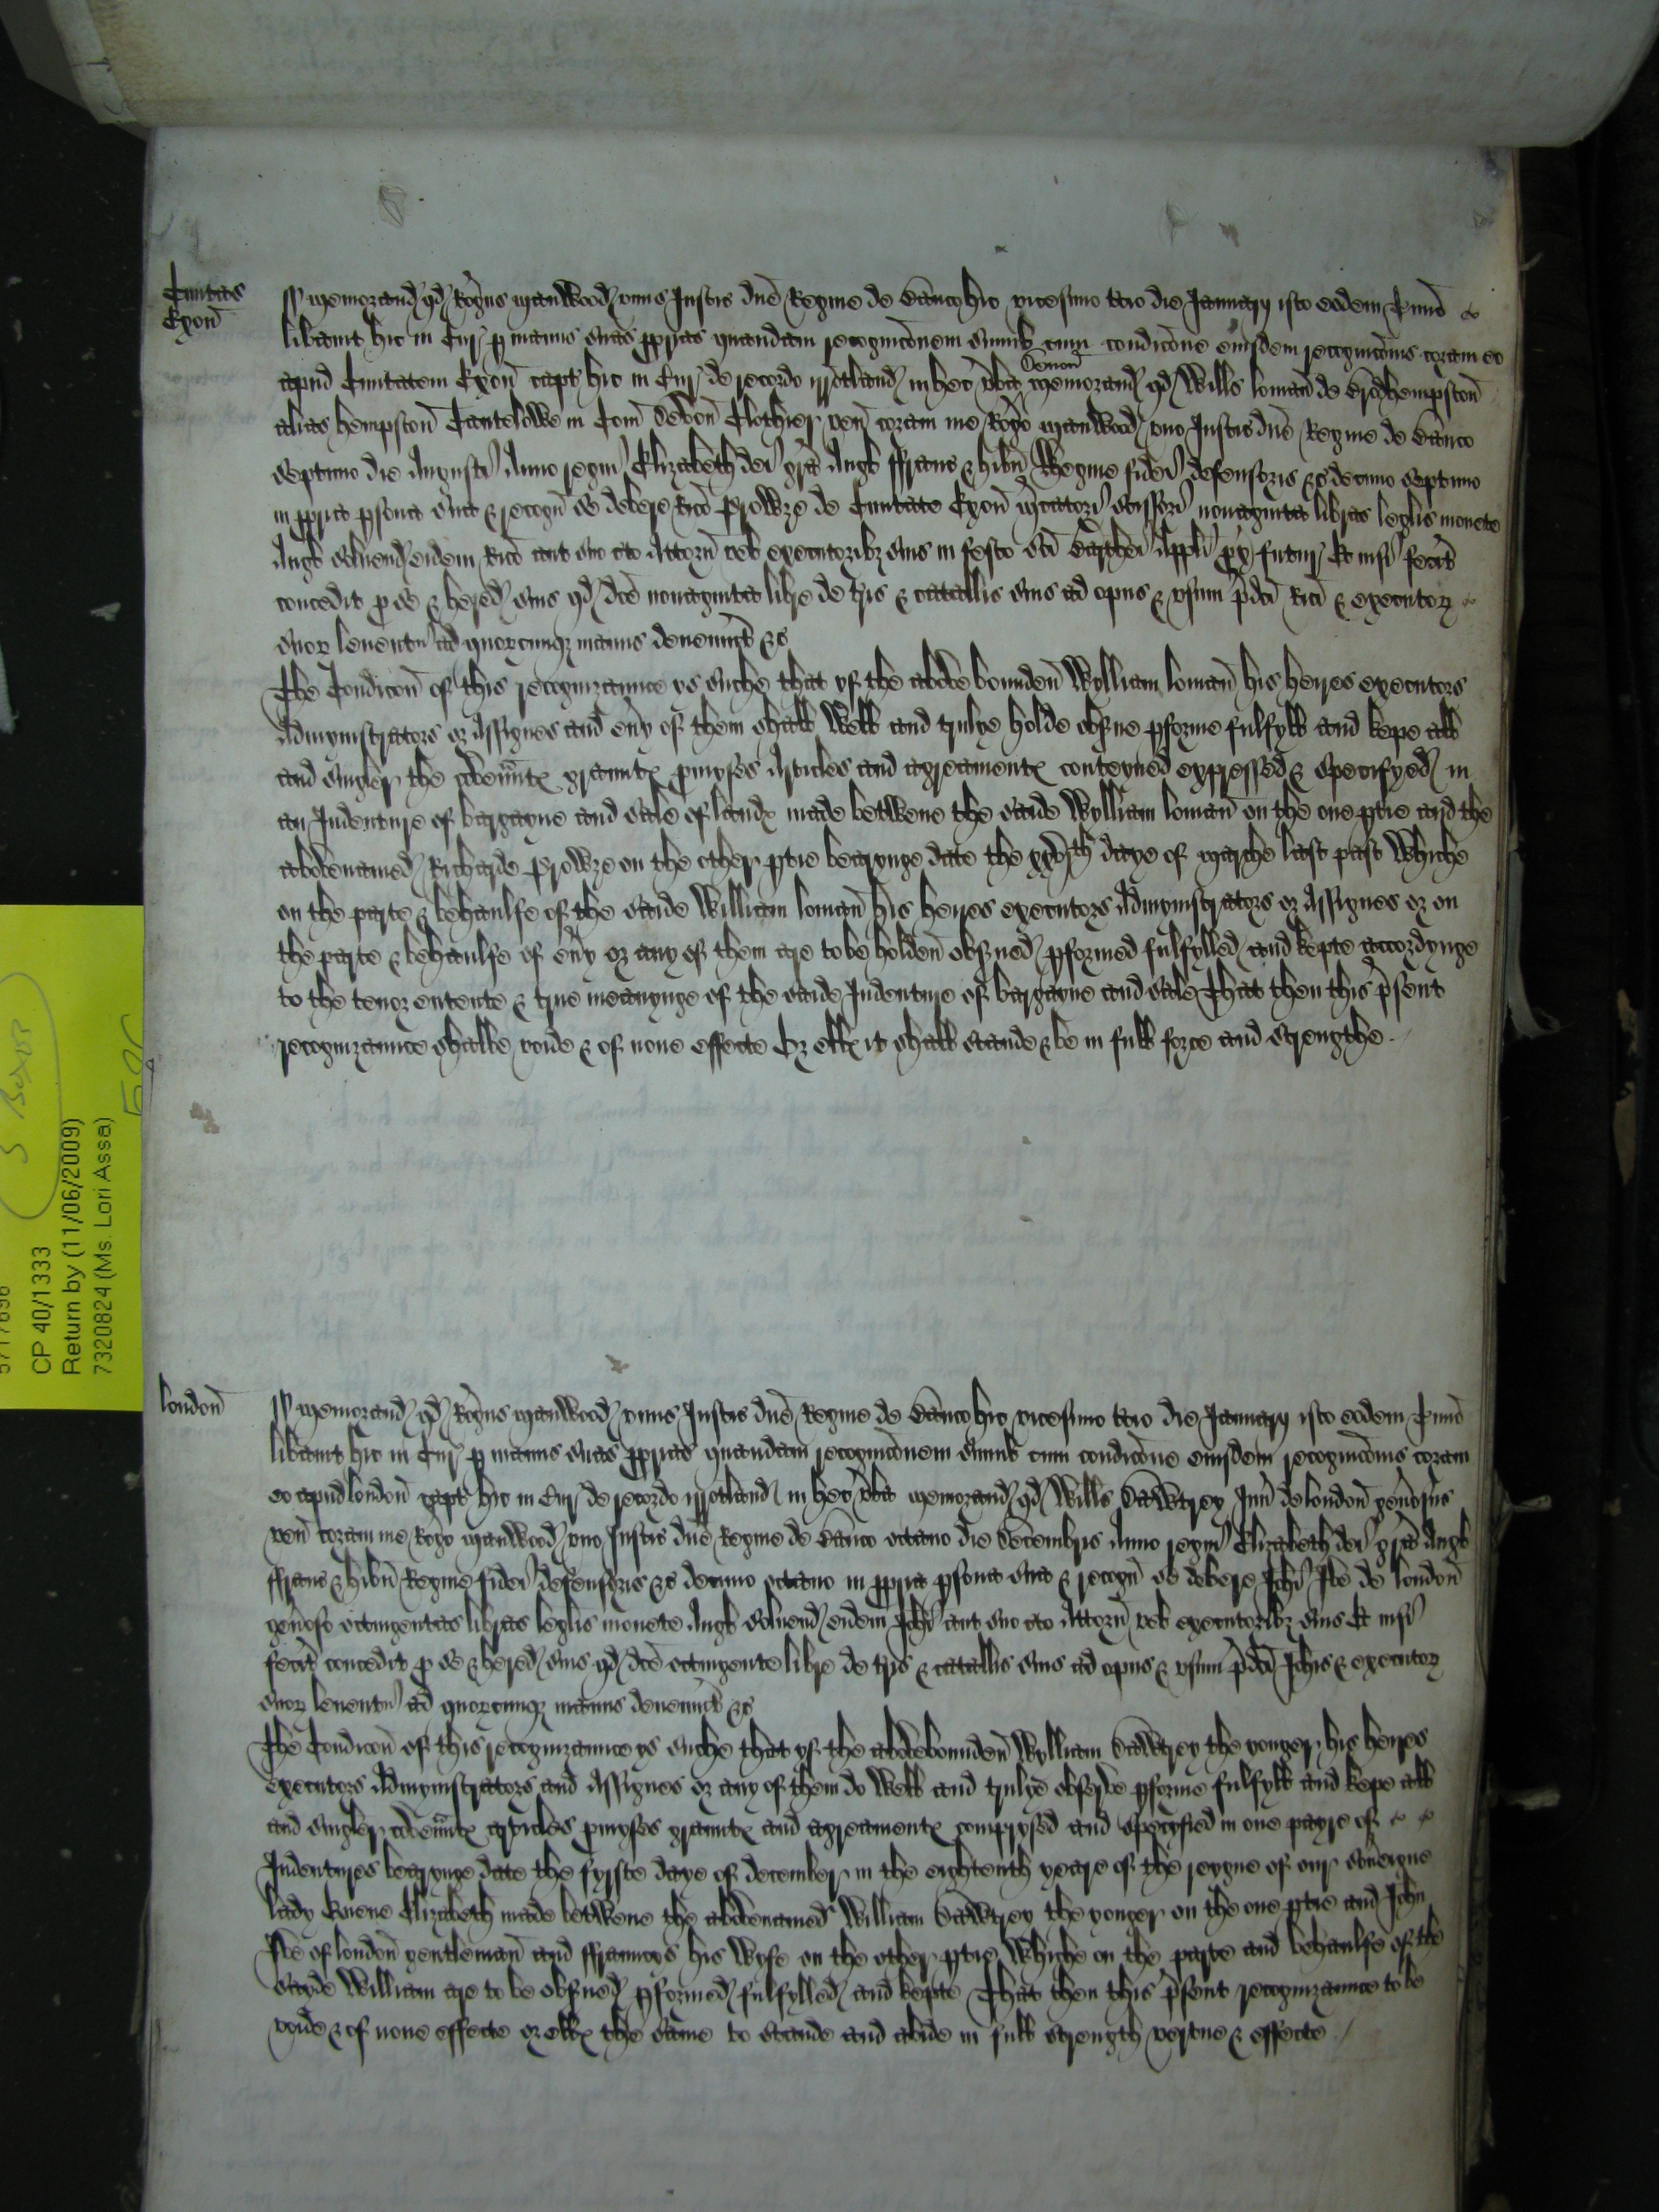 Ciuitas
Exon
Memorand qd Rogus Manwood vnus Justic dne Regine de Banco hic vicesimo tcio die Januarij isto eodem Tmino
libauit hic in Cur p manus suas pprias quandam recognicoem simul cum condicoe eiusdem recognicois coram eo
apud Ciuitatem Exon capt hic in Cur de recordo irrotland in hec vba Devon Memorand qd Wills Loman de Brodhempston
alias hempston Cantelowe in Com Devon Clothier ven coram me Rogo Manwood vno Justic dne Regine de Banco
Septimo die Augusti Anno regni Elizabeth dei gra Angl ffranc & hibn Regine fidei defensoris &c decimo septimo
in ppria psona sua & recogn se debere Rico Prowze de Ciuitate Exon mcatori nonaginta libras legalis monete
Angl soluend eidem Rico aut suo cto Attorn vel executoribz suis in festo sci Barthei Appli px futur Et nisi fecit
concedit p se & hered suis qd dce nonaginta libre de tris & catallis suis ad opus & vsum pdci Rici & executor
suor leuentur ad quorcumqz manus deuenint &c
The Condicon of this recognizaunce ys suche that yf the above bounden Wylliam Loman his heyres executors
Admynistrators or Assignes and evy of them shall well and trulye holde obsue pforme fulfyll and kepe all
and singler the covennts graunts pmyses Articles and agreaments conteyned expressed & specifyed in
an Indenture of bargayne and sale of lands made betwene the saide Wylliam Loman on the one ptie and the
abovenamed Richarde Prowze on the other ptie bearynge date the xxvth daye of Marche last past Whiche
on the parte & behaulfe of the saide William Loman his heyres executors Admynistrators or Assignes or on
the parte & behaulfe of evy or any of them are to be holden obsued pformed fulfylled and kepte accordynge
to the tenor entente & true meanynge of the saide Indenture of bargayne and sale That then this psent
recognizaunce shalbe voide & of none effecte Or ells it shall stande & be in full force and strengthe
London
Memorand qd Rogus Manwood vnus Justic dne Regine de Banco hic vicesimo tcio die Januarij isto eodem Tmino
libauit hic in Cur p manus suas pprias quandam recognicoem simul cum condicoe eiusdem recognicois coram
eo apud London capt hic in Cur de recordo irrotland in hec vba Memorand qd Wills Sawtrey Jun de London genosus
ven coram me Rogo Manwood vno Justic dne Regine de Banco octauo die Decembris Anno regni Elizabeth dei gra Angl
ffranc & hibn Regine fidei defensoris &c decimo octauo in ppria psona sua & recogn se debere Johi Ive de London
genoso octingentas libras leglis monete Angl soluend eidem Johi aut suo cto Attorn vel executoribz suis Et nisi
fecit concedit p se & hered suis qd dce octingente libre de tris & catallis suis ad opus & vsum pdci Johis & executor
suor leuentur ad quorcumqz manus deuenint &c
The Condicon of this recognizaunce ys suche that yf the abovebounden Wylliam Sawtrey the yonger his heyres
executors Admynistrators and Assignes or any of them do well and trulye observe pforme fulfyll and kepe all
and singler covennts articles pmyses graunts and agreaments comprysed and specyfied in one payre of
Indentures bearynge date the fyrste daye of december in the eightenth yeare of the reygne of our Soveigne
lady Quene Elizabeth made betwene the abovenamed William Sawtrey the yonger on the one ptie and John
Ive of london gentleman and ffrauncys his wyfe on the other ptie Whiche on the parte and behaulfe of the
sayde William are to be obsued pformed fulfylled and kepte That then this psent recognizaunce to be
voide & of none effecte or ells the same to stande and abide in full strength vertue & effecte
CP 40/1333
Return by (11/06/2009)
7320824 (Ms. Lori Assa)